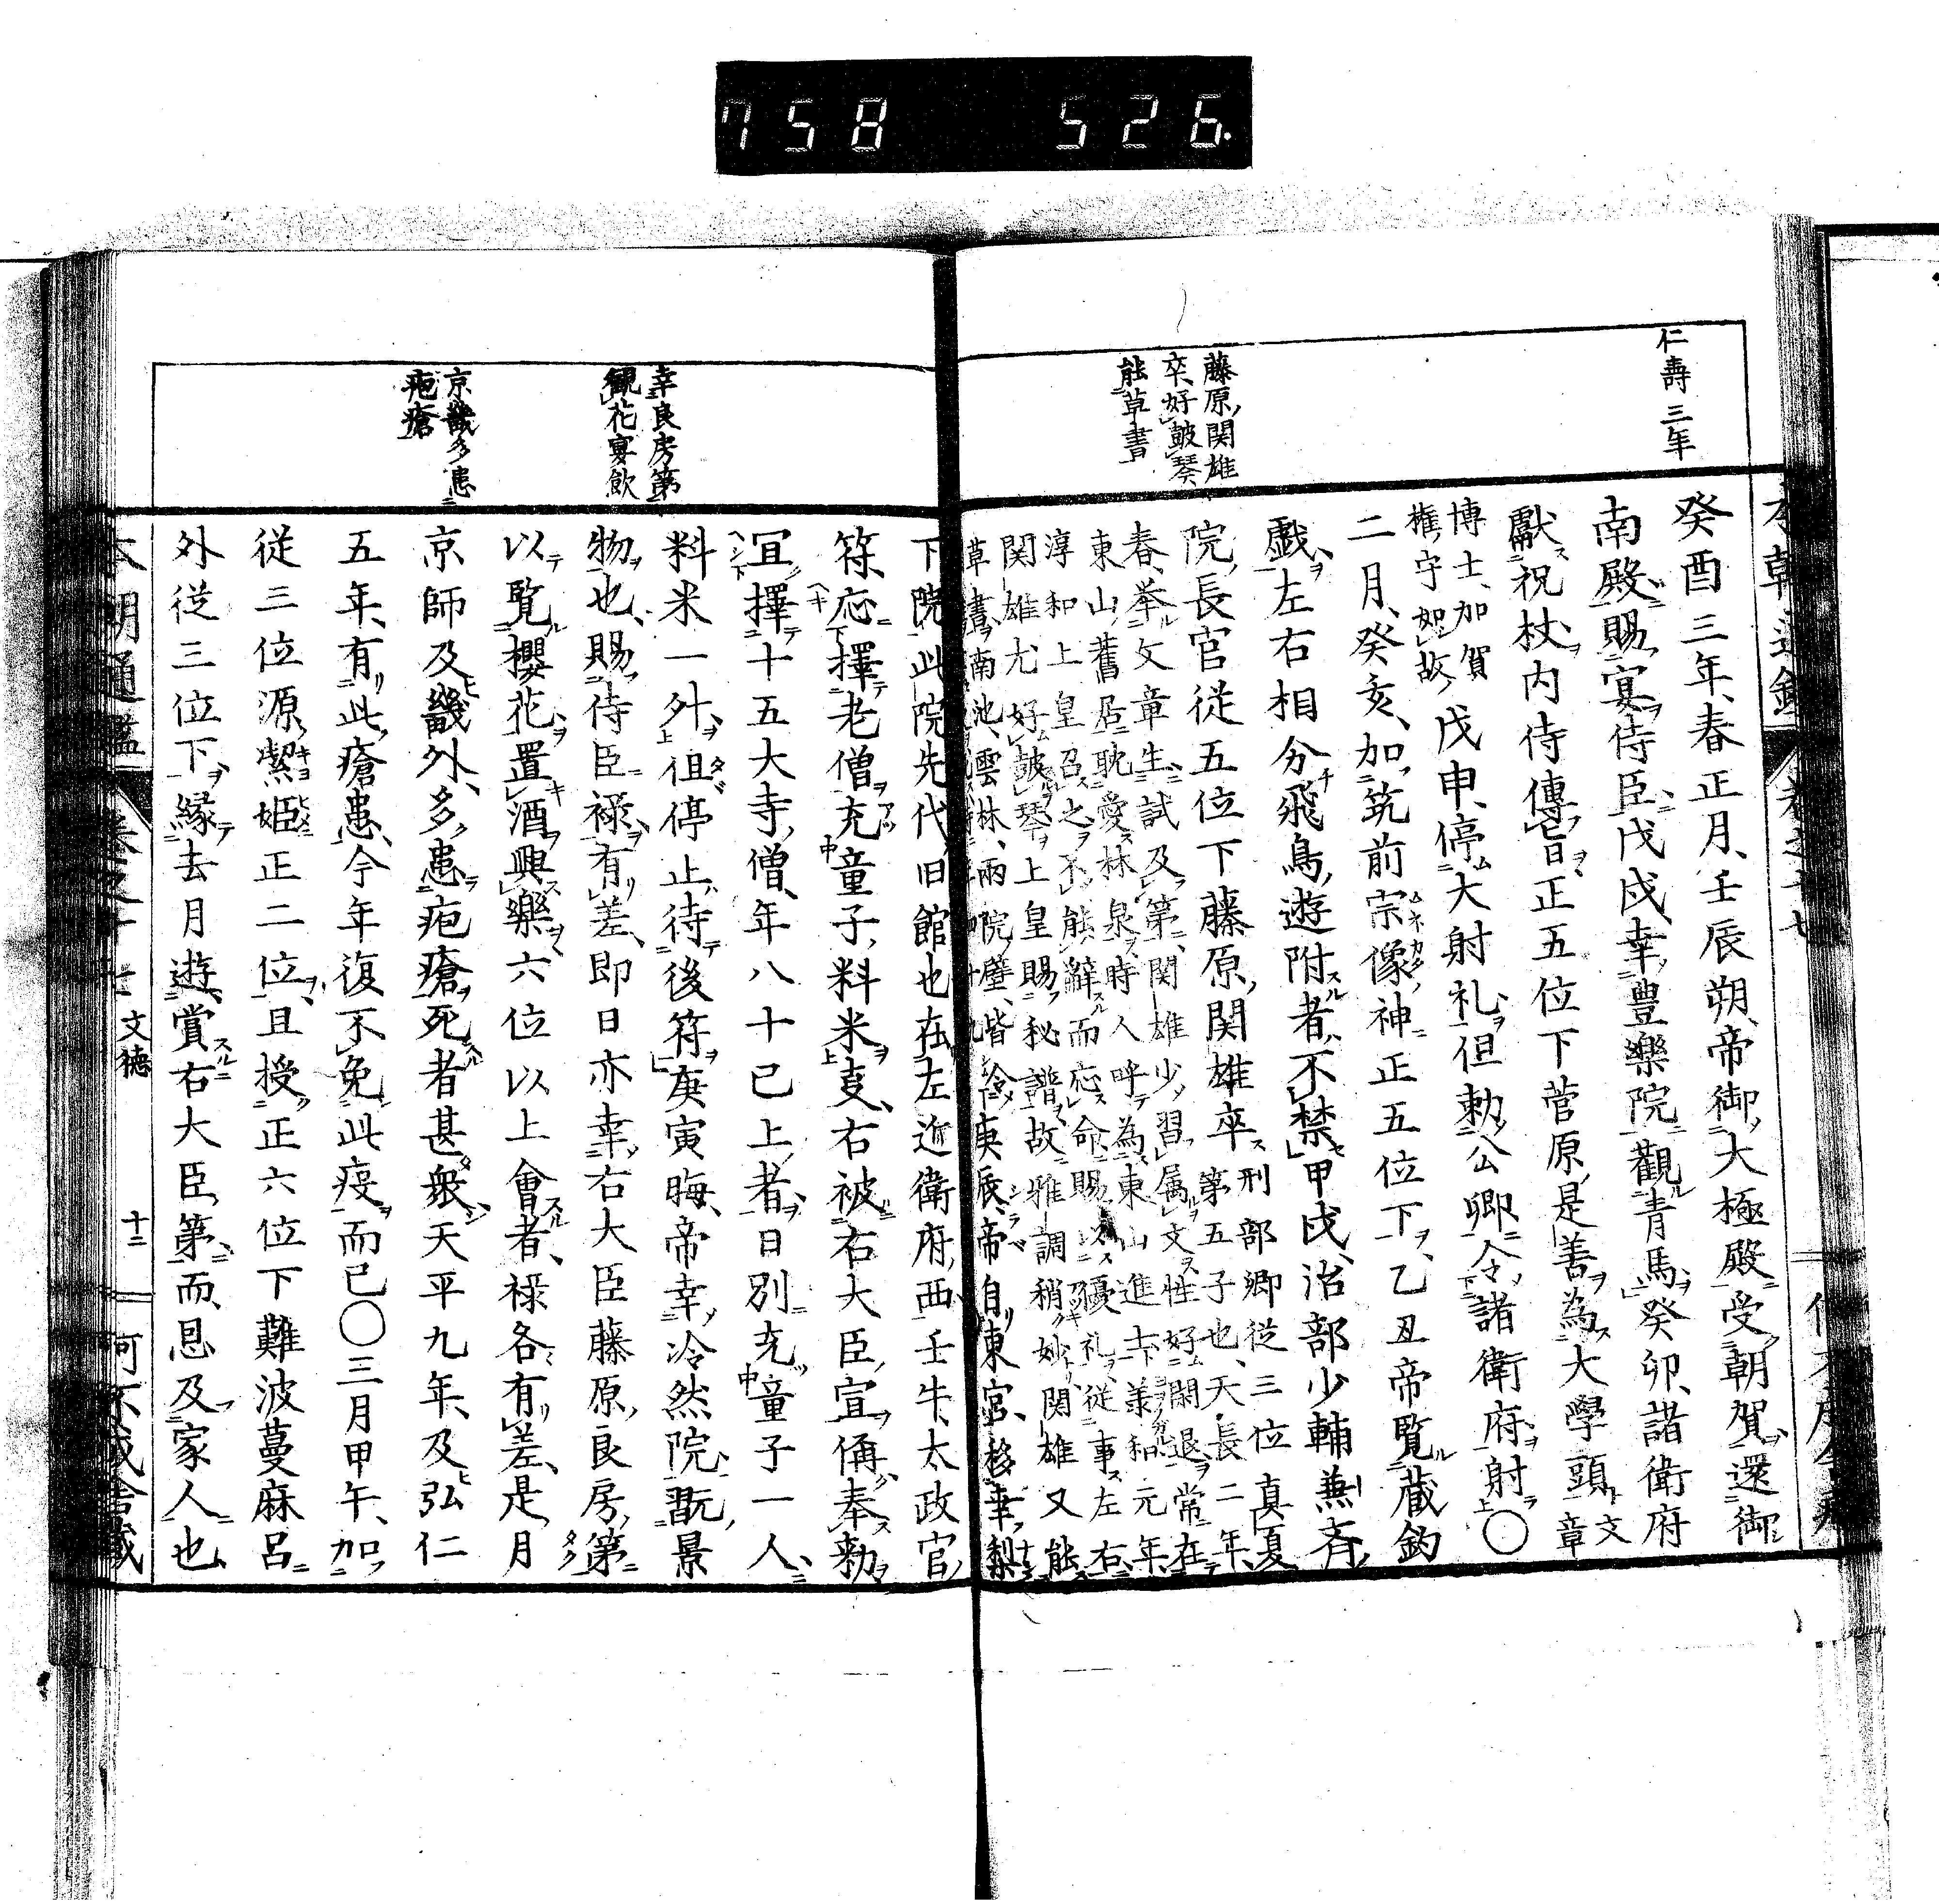 758 526.
仁壽三年
癸酉三年、春正月、壬辰朔、帝御大極殿受朝賀、還御
南殿賜宴侍臣、戊戌幸豊樂院觀青馬、癸卯、諸衛府
獻祝杖、内侍傳旨、正五位下菅原是善為大學頭文章
博士、加賀權守如故、戊申、停大射礼、但勅公卿令諸衛府射〇
二月、癸亥、加筑前宗像神正五位下、乙丑帝覽蔵鈎
戯、左右相分飛鳥遊附者不禁、甲戌、治部少輔兼斉
院長官従五位下藤原関雄卒
刑部卿従三位真夏
第五子也、天長二年、
春、举文章生試及第、関雄少習属文性好閑退常在
東山舊居耽愛林泉、時人呼為東山進士、承和元年、
淳和上皇召之、不能辭而應命、賜以優礼、従事左右、
関雄尤好皷琴、上皇賜秘譜、故雅調稍妙、関雄又能
草書、南池雲林両院壁、皆令
庚辰、帝自東宮、移幸梨
藤原関雄
卒、好皷琴
能草書
下院、此院先代旧館也、在左近衛府西、壬午、太政官
符、応擇老僧充童子料米支、右被右大臣宣偁、奉勅
宜擇十五大寺僧、年八十已上者、日別充童子一人
料米一升、但停止待後符、庚寅晦、帝幸冷然院、翫景
物也、賜侍臣禄有差、即日亦幸右大臣藤原良房第
以覽櫻花、置酒興樂、六位以上會者、禄各有差、是月
京師及畿外、多患疱瘡、死者甚衆、天平九年、及弘仁
五年、有此瘡患、今年復不免此疫而已〇三月甲午、加
従三位源潔姫正二位、且授正六位下難波蔓麻呂
外従三位下、縁去月遊賞右大臣第、而恩及家人也
幸良房第
観花宴飲
京畿多患
疱瘡
本朝通鑑 卷之十七 文徳 十二